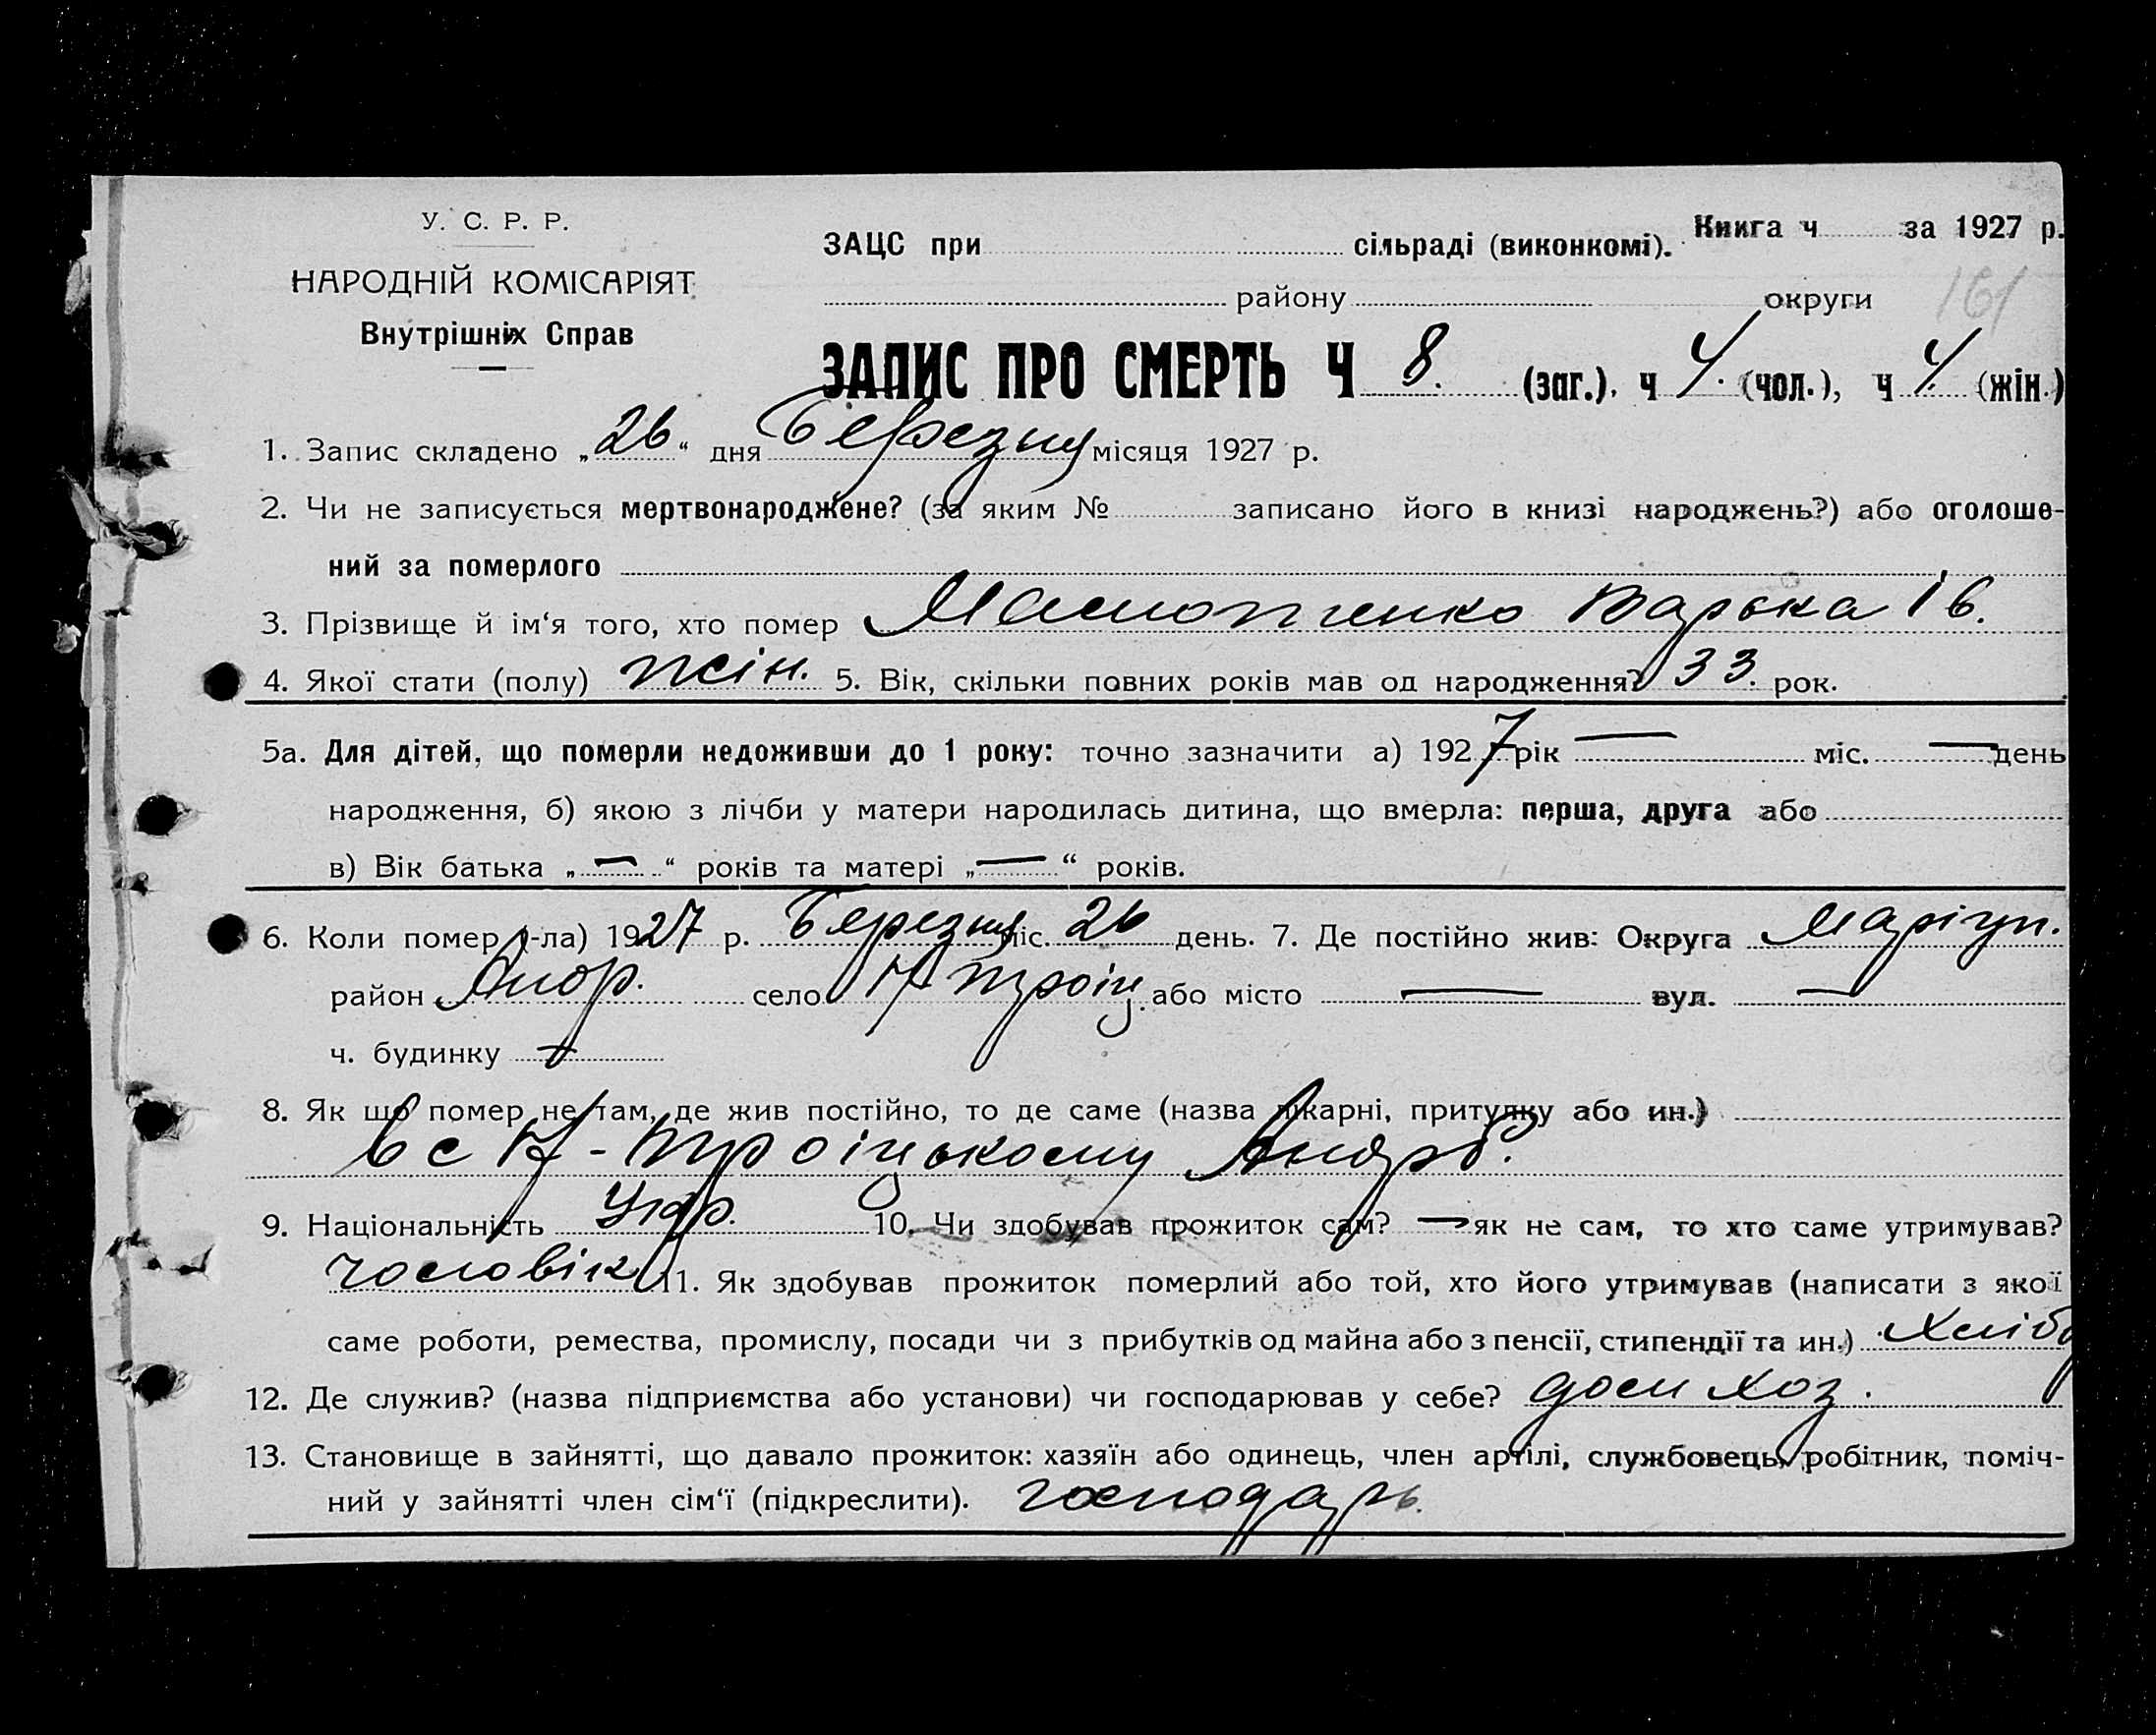 У. С. Р. Р.
НАРОДНІЙ КОМІСАРІЯТ
Внутрішніх Справ
ЗАЦС при сільраді (виконкомі). Книга ч за 1927 р.
району округи 161
ЗАПИС ПРО СМЕРТЬ Ч 8. (заг.), ч 4. (чол.), ч 4. (жін.)
1. Запис складено „26“ дня Березня місяця 1927 р.
2. Чи не записується мертвонароджене? (за яким № записано його в книзі народжень?) або оголоше-
ний за померлого
3. Прізвище й ім‘я того, хто помер Варька Ів.
4. Якої стати (полу) жін. 5. Вік, скільки повних років мав од народження? 33. рок.
5а. Для дітей, що померли недоживши до 1 року: точно зазначити а) 1927 рік — міс. — день
народження, б) якою з лічби у матери народилась дитина, що вмерла: перша, друга або
в) Вік батька „—“ років та матері „—“ років.
6. Коли помер (-ла) 1927 р. Березня міс. 26 день. 7. Де постійно жив: Округа Маріуп.
район село Н Троіц. або місто — вул. —
ч. будинку —
8. Як що помер не там, де жив постійно, то де саме (назва лікарні, притулку або ин.)
в с Н-Троіцькому
9. Національність Укр. 10. Чи здобував прожиток сам? — як не сам, то хто саме утримував?
чоловік 11. Як здобував прожиток померлий або той, хто його утримував (написати з якої
саме роботи, ремества, промислу, посади чи з прибутків од майна або з пенсії, стипендії та ин.) Хліб
12. Де служив? (назва підприємства або установи) чи господарював у себе? дом хоз.
13. Становище в зайнятті, що давало прожиток: хазяїн або одинець, член артілі, службовець, робітник, поміч-
ний у зайнятті член сім‘ї (підкреслити). господарь.